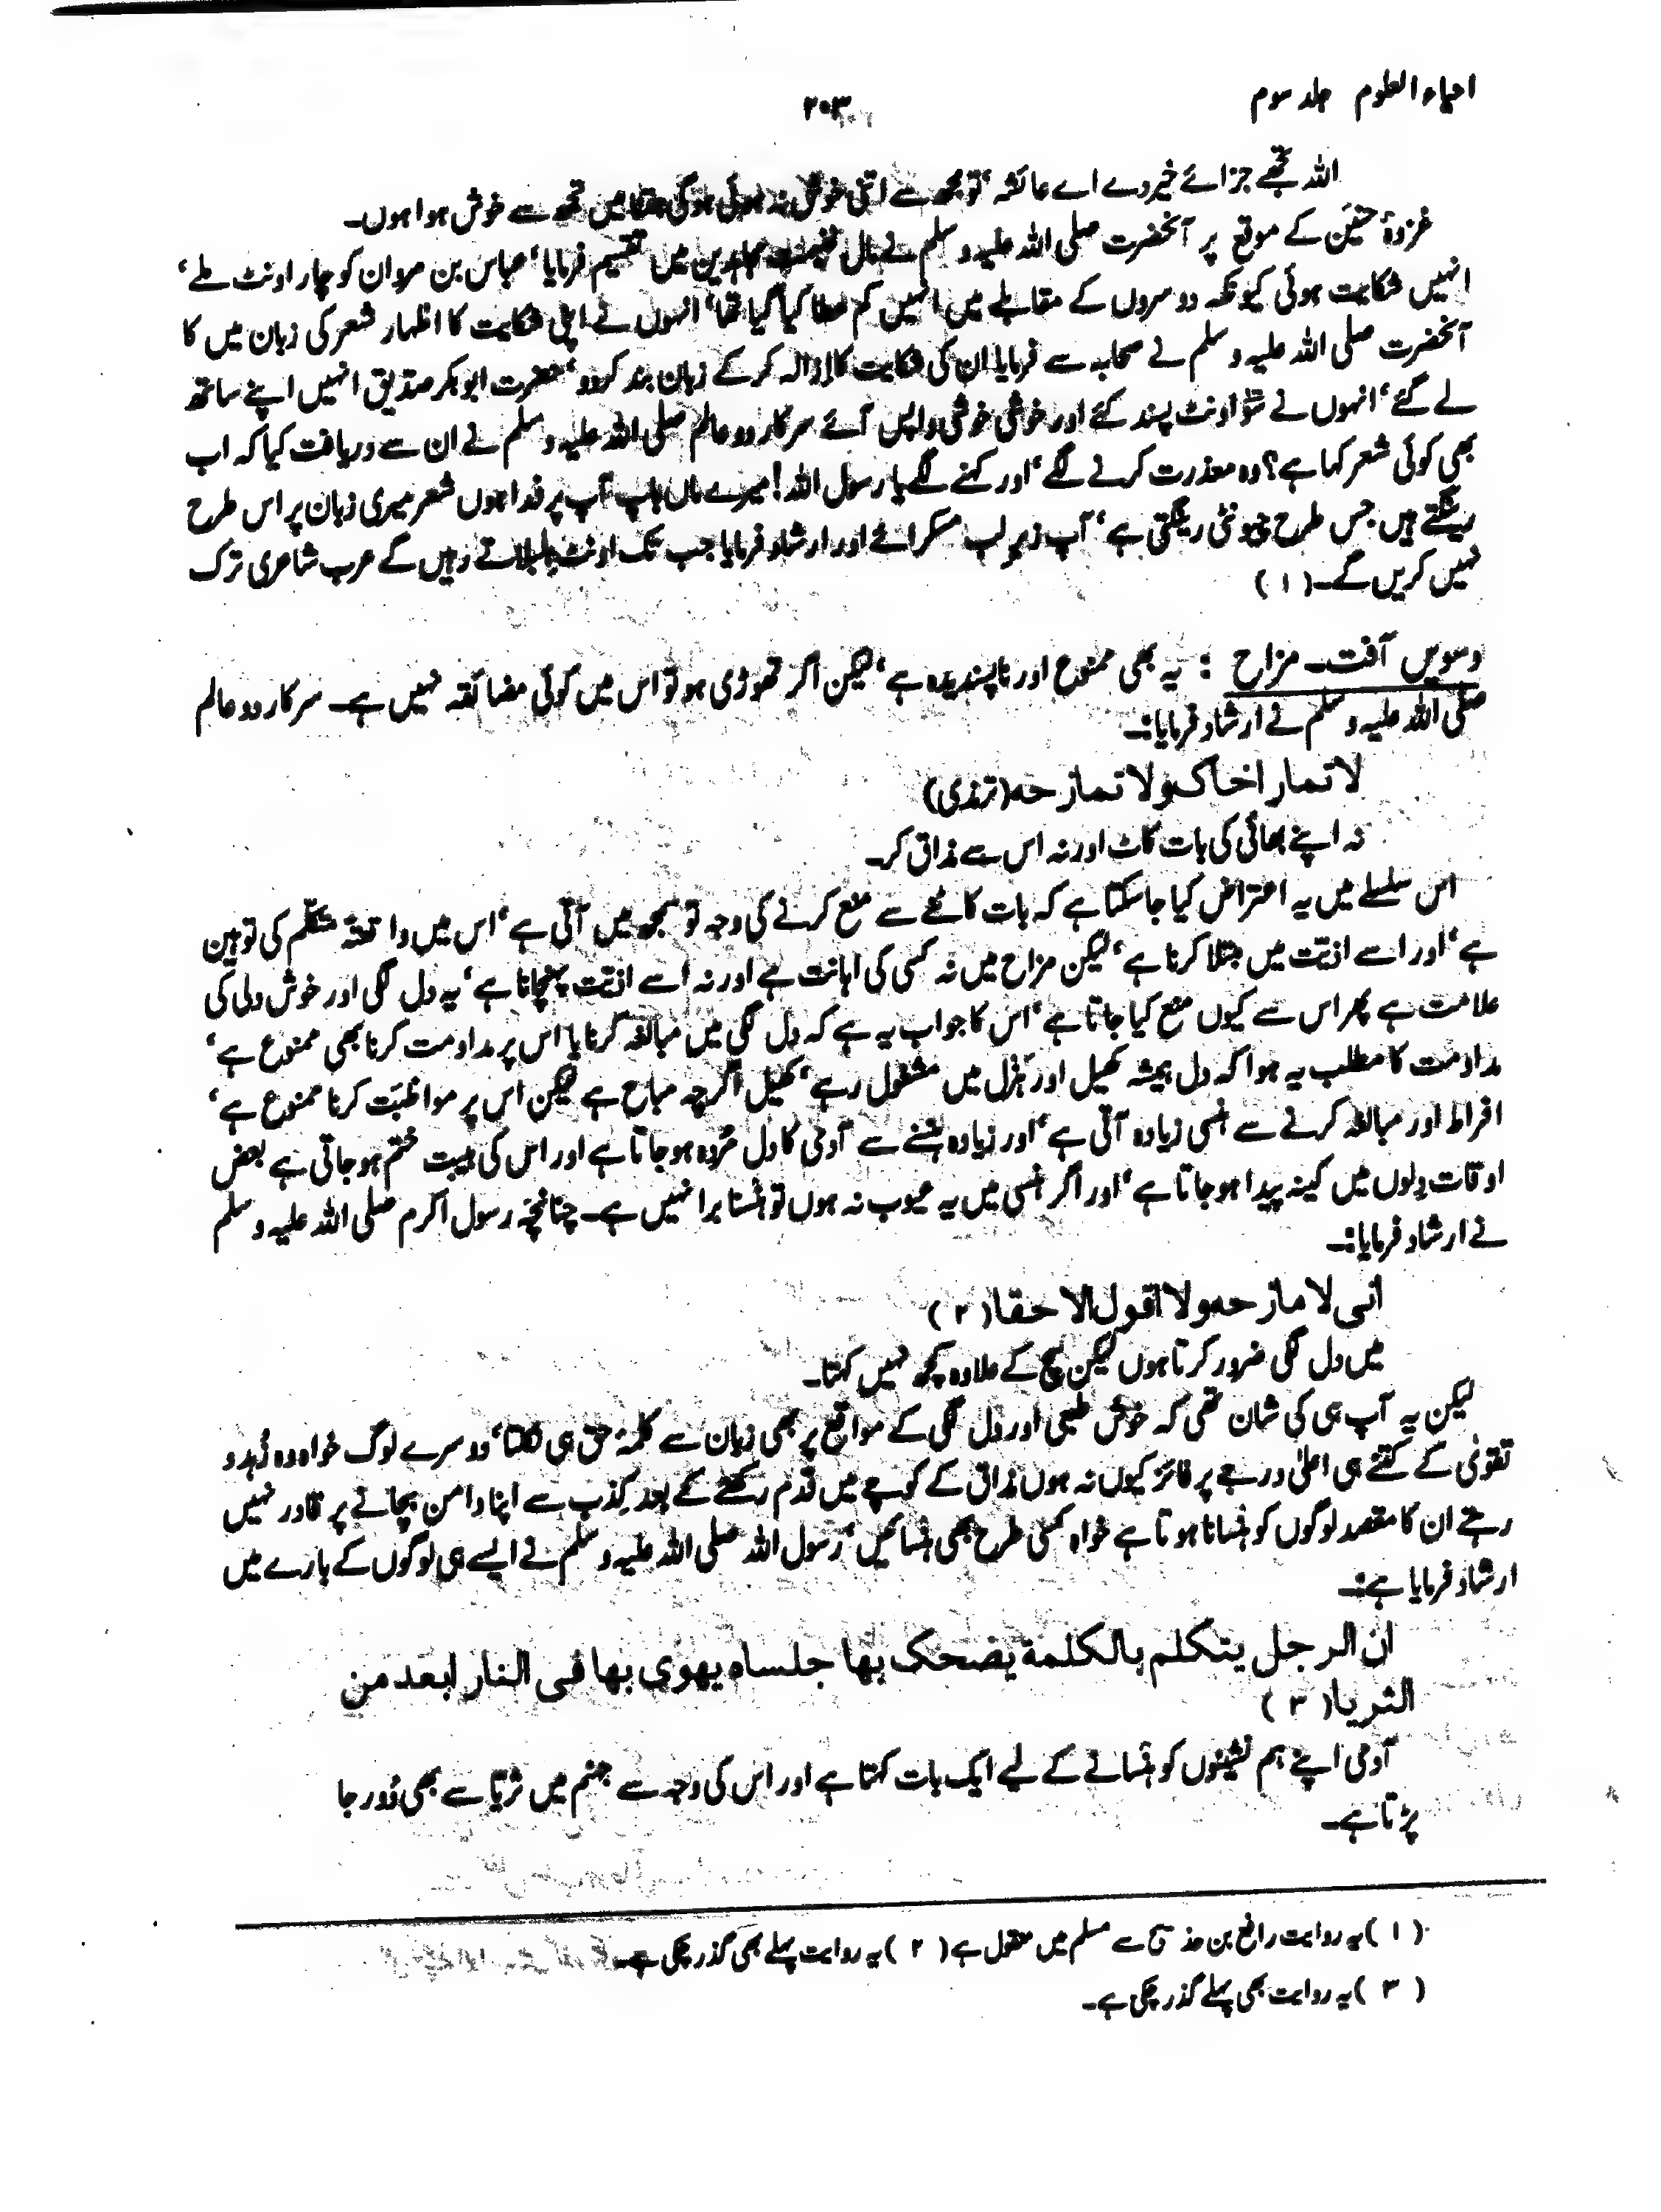 احیاء العلوم جلد سوم
۲۰۳
اللہ تجھے جزائے خیر دے اے عائشہ ‘ تو مجھ سے اتنی خوش نہ ہوئی ہوگی جتنا میں تجھ سے خوش ہوا ہوں۔
غزوۂ حنین کے موقع پر آنحضرت صلی اللہ علیہ وسلم نے مال غنیمت مجاہدین میں تقسیم فرمایا‘ عباس بن مروان کو چار اونٹ ملے‘
انہیں شکایت ہوئی کیونکہ دوسروں کے مقابلے میں انہیں کم عطا کیا گیا تھا‘ انہوں نے اپنی شکایت کا اظہار شعر کی زبان میں کا
آنحضرت صلی اللہ علیہ وسلم نے صحابہ سے فرمایا ان کی شکایت کا ازالہ کر کے زبان بند کردو‘ حضرت ابوبکر صدیق انہیں اپنے ساتھ
لے گئے‘ انہوں نے سَو اونٹ پسند کئے اور خوشی خوشی واپس آئے سرکار دو عالم صلی اللہ علیہ وسلم نے ان سے دریافت کیا کہ اب
بھی کوئی شعر کہا ہے؟ وہ معذرت کرنے لگے‘ اور کہنے لگے یا رسول اللہ! میرے ماں باپ آپ پر فدا ہوں شعر میری زبان پر اس طرح
رینگتے ہیں جس طرح چیونٹی رینگتی ہے‘ آپ زیرِ لب مسکرائے اور ارشاد فرمایا جب تک اونٹ بلبلاتے رہیں گے عرب شاعری ترک
نہیں کریں گے۔ (۱)
دسویں آفت۔ مزاح : یہ بھی ممنوع اور ناپسندیدہ ہے‘ لیکن اگر تھوڑی ہو تو اس میں کوئی مضائقہ نہیں ہے۔ سرکار دو عالم
صلی اللہ علیہ وسلم نے ارشاد فرمایا:۔
لا تمار اخاک ولا تماز حہ (ترمذی)
نہ اپنے بھائی کی بات کاٹ اور نہ اس سے مذاق کر۔
اس سلسلے میں یہ اعتراض کیا جاسکتا ہے کہ بات کاٹنے سے منع کرنے کی وجہ تو سمجھ میں آتی ہے‘ اس میں واقعۃً متکلّم کی توہین
ہے‘ اور اسے اذیّت میں مبتلا کرنا ہے‘ لیکن مزاح میں نہ کسی کی اہانت ہے اور نہ اسے اذیّت پہنچانا ہے‘ یہ دل لگی اور خوش دلی کی
علامت ہے پھر اس سے کیوں منع کیا جاتا ہے‘ اس کا جواب یہ ہے کہ دل لگی میں مبالغہ کرنا یا اس پر مداومت کرنا بھی ممنوع ہے‘
مداومت کا مطلب یہ ہوا کہ دل ہمیشہ کھیل اور ہَزل میں مشغول رہے‘ کھیل اگرچہ مباح ہے لیکن اس پر مواظبَت کرنا ممنوع ہے‘
افراط اور مبالغہ کرنے سے ہنسی زیادہ آتی ہے‘ اور زیادہ ہنسنے سے آدمی کا دل مُردہ ہو جاتا ہے اور اس کی ہیبت ختم ہو جاتی ہے بعض
اوقات دِلوں میں کینہ پیدا ہو جاتا ہے‘ اور اگر ہنسی میں یہ عیوب نہ ہوں تو ہنسنا برا نہیں ہے۔ چنانچہ رسول اکرم صلی اللہ علیہ وسلم
نے ارشاد فرمایا:۔
انی لا مازحہ ولا اقول الا حقا (۲)
میں دل لگی ضرور کرتا ہوں لیکن سچ کے علاوہ کچھ نہیں کہتا۔
لیکن یہ آپ ہی کی شان تھی کہ خوش طبعی اور دل لگی کے مواقع پر بھی زبان سے کلمۂ حق ہی نکلتا‘ دوسرے لوگ خواہ وہ زُہد و
تقویٰ کے کتنے ہی اعلیٰ درجے پر فائز کیوں نہ ہوں مذاق کے کوچے میں قدم رکھنے کے بعد کِذب سے اپنا دامن بچانے پر قادر نہیں
رہتے ان کا مقصد لوگوں کو ہنسانا ہوتا ہے خواہ کسی طرح بھی ہنسائیں‘ رسول اللہ صلی اللہ علیہ وسلم نے ایسے ہی لوگوں کے بارے میں
ارشاد فرمایا ہے:۔
ان الرجل یتکلم بالکلمة یضحک بھا جلساہ یھوی بھا فی النار ابعد من
الثریا (۳)
آدمی اپنے ہم نشینوں کو ہنسانے کے لیے ایک بات کہتا ہے اور اس کی وجہ سے جہنم میں ثریّا سے بھی دُور جا
پڑتا ہے۔
(۱) یہ روایت رافع بن خدیج سے مسلم میں منقول ہے (۲) یہ روایت پہلے بھی گذر چکی ہے۔
(۳) یہ روایت بھی پہلے گذر چکی ہے۔